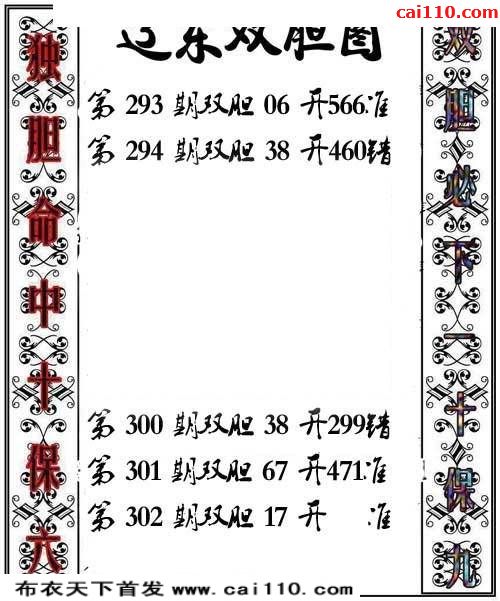 cai110.com
辽东双胆图
独胆命中十保六
第 293 期双胆 06 开566准
第 294 期双胆 38 开460错
第 300 期双胆 38 开299错
第 301 期双胆 67 开471准
第 302 期双胆 17 开 准
双胆必下一十保九
布衣天下首发 www.cai110.com